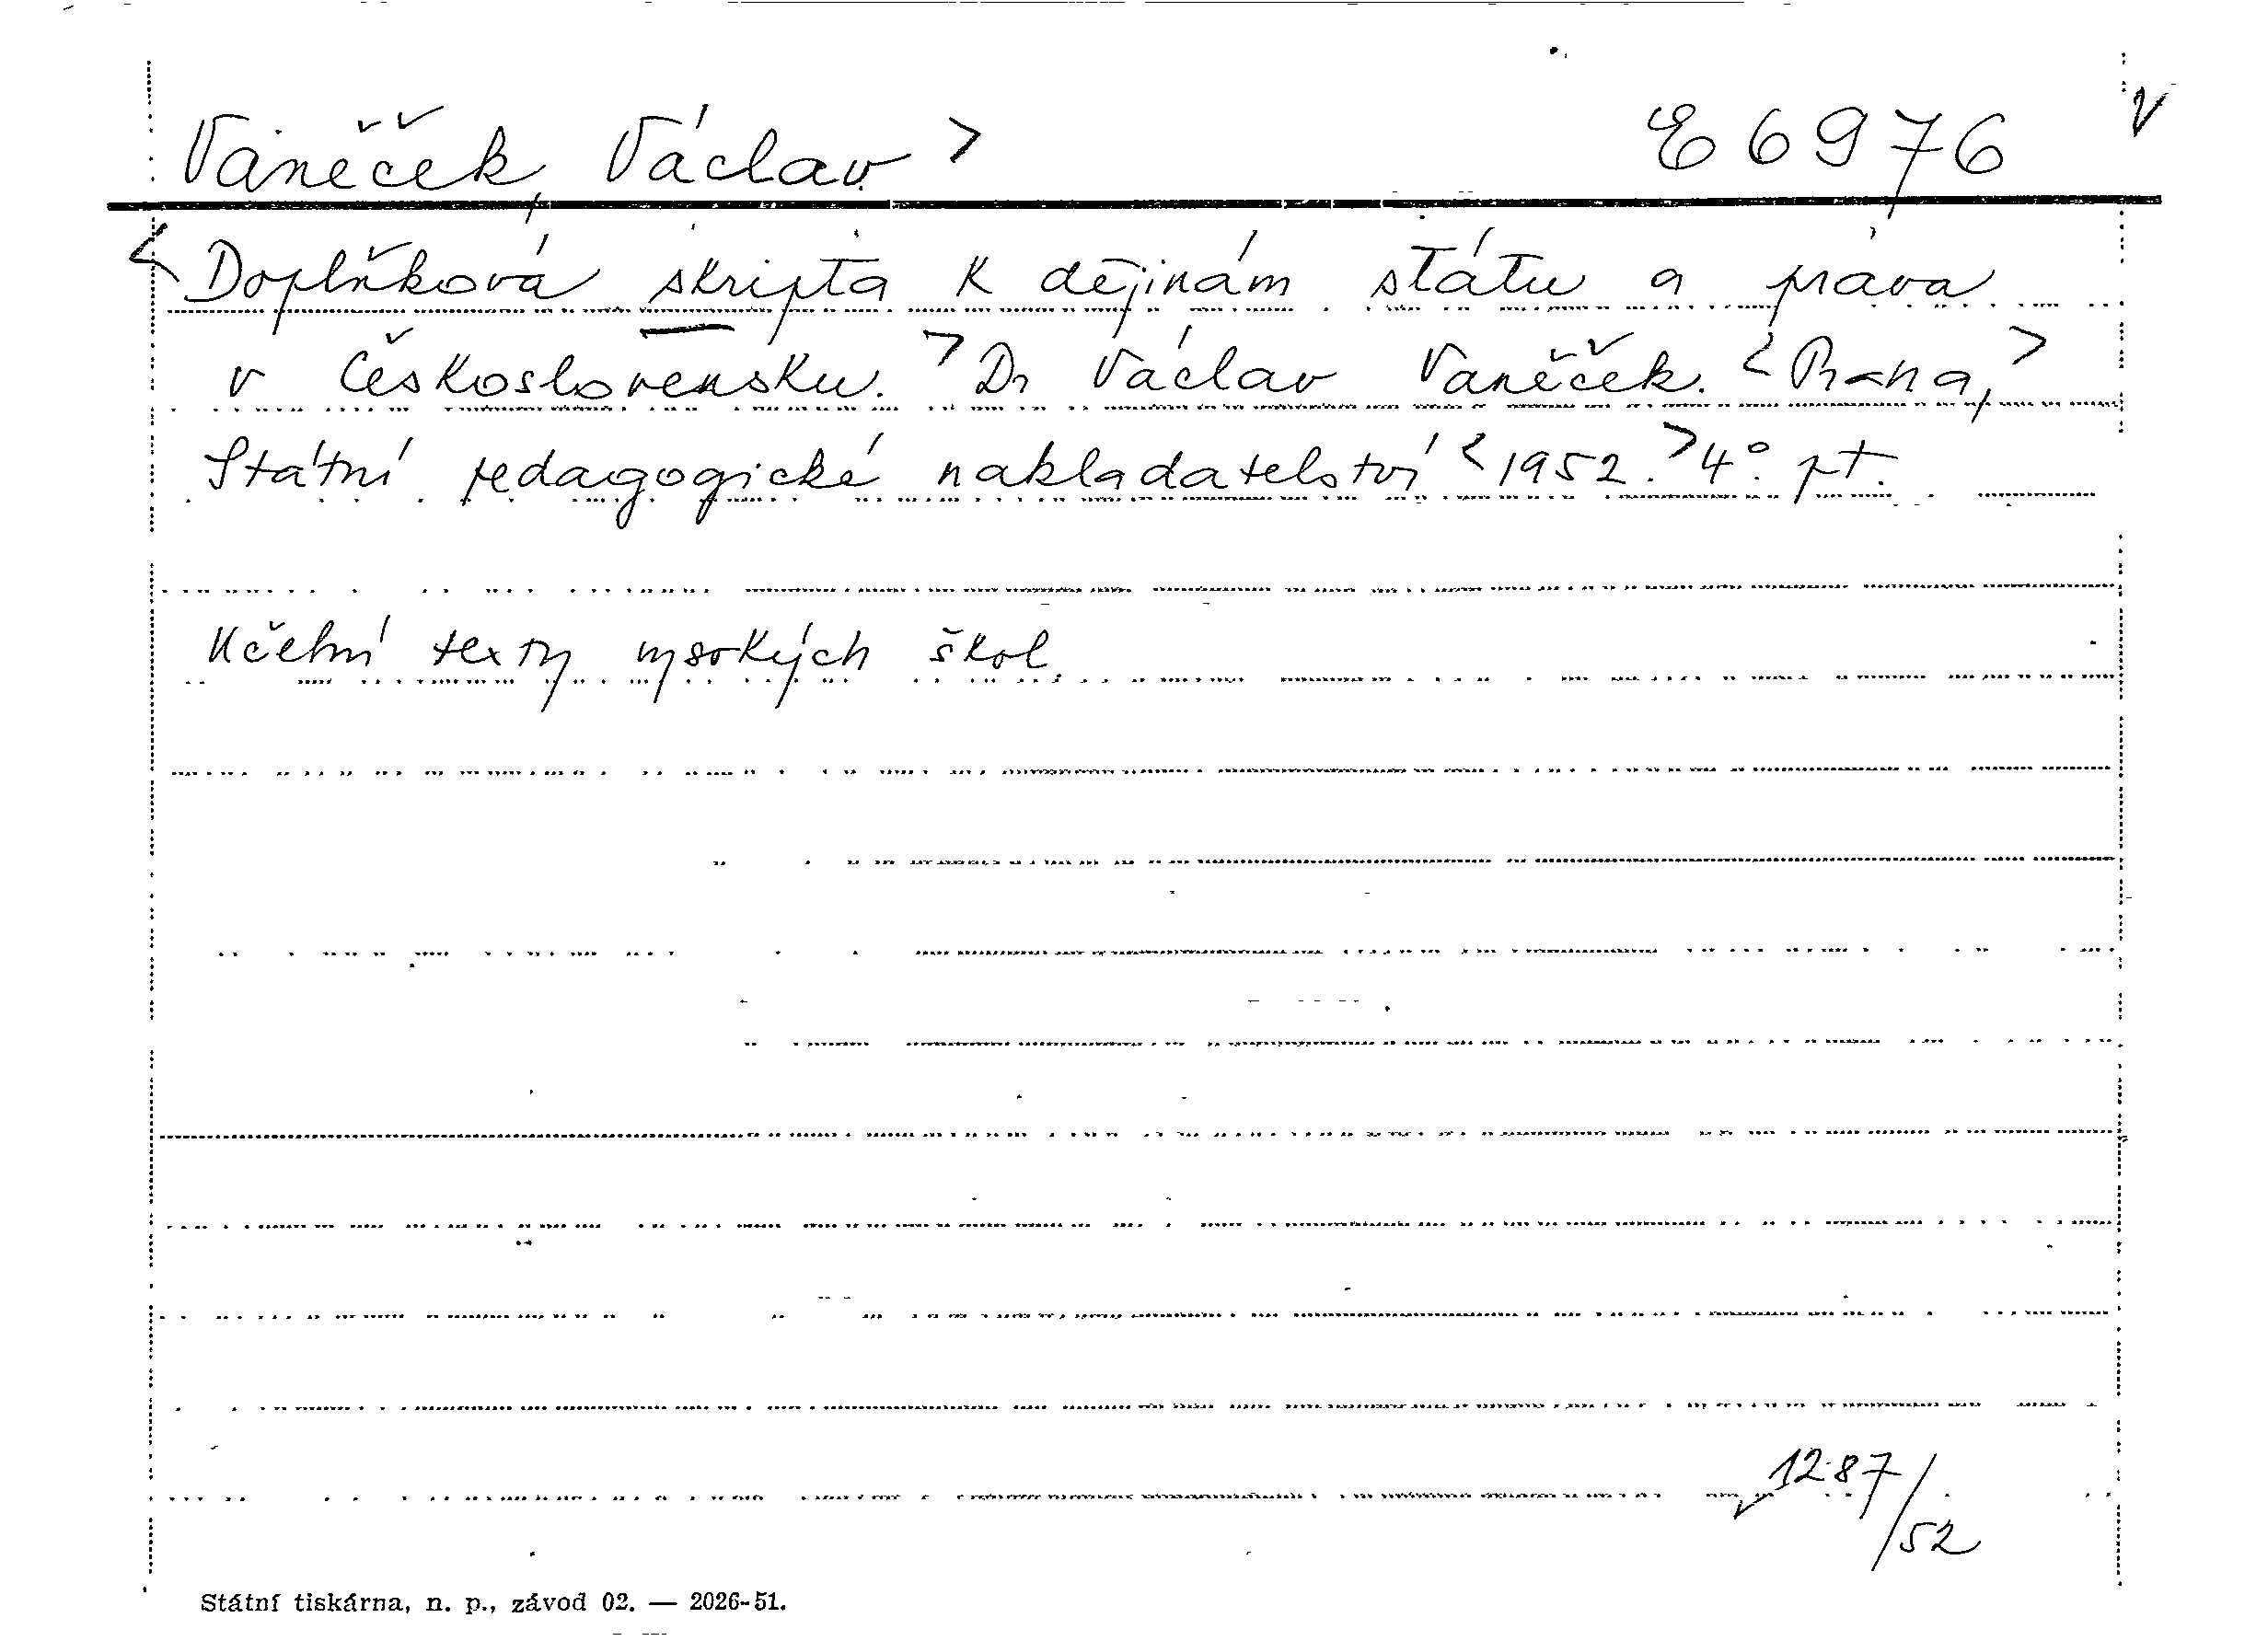 Vaněček, Václav > E 6976 V
< Doplňková skripta k dějinám státu a práva
v Československu. > Dr Václav Vaněček. < Praha, >
Státní pedagogické nakladatelství < 1952. > 4°. pt.
Učební texty vysokých škol.
1287/52
Státní tiskárna, n. p., závod 02. — 2026-51.